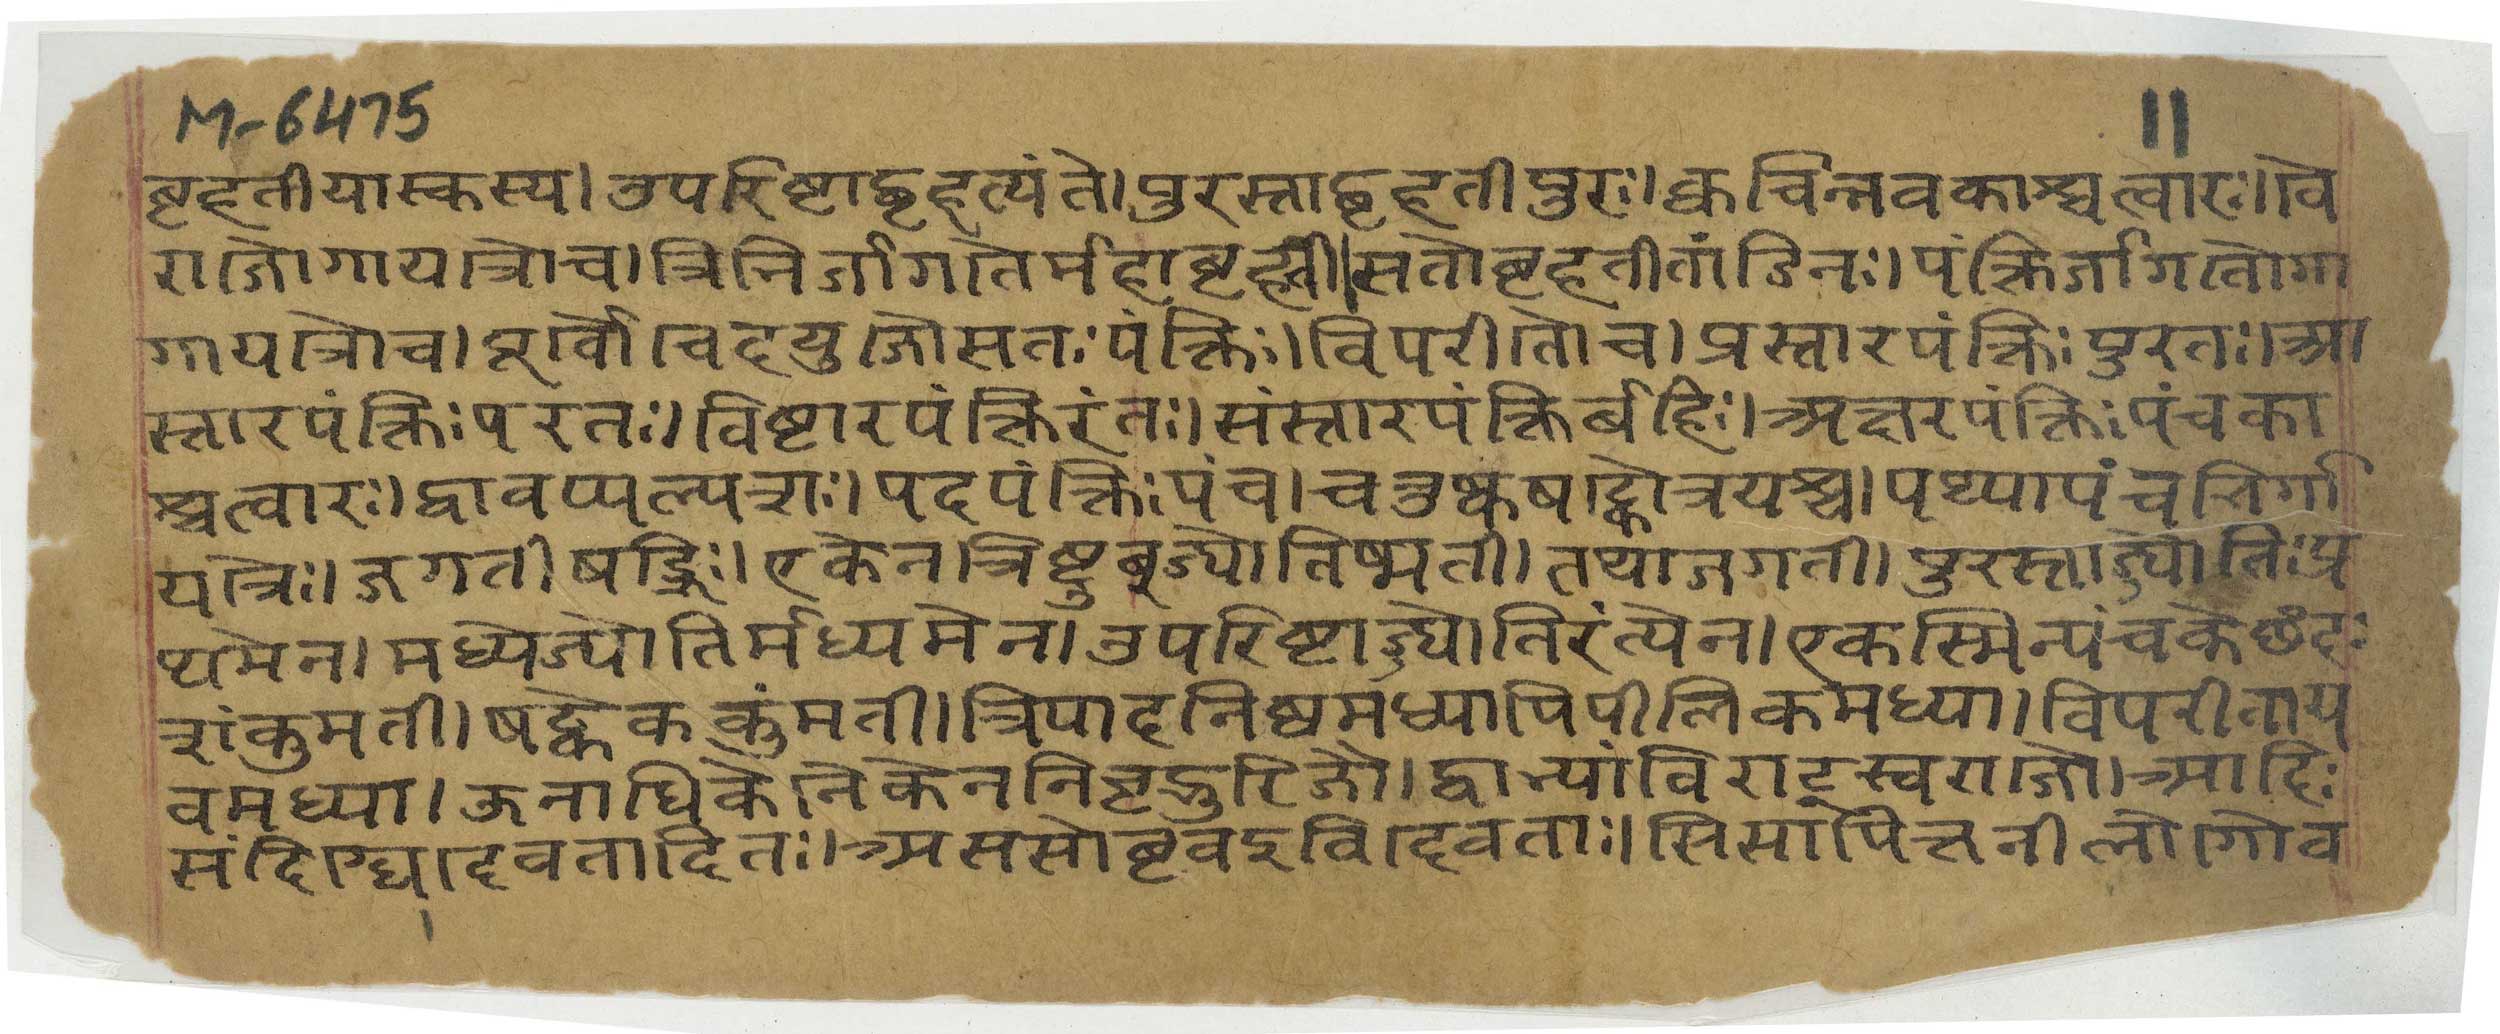 M-6475
॥
बृहतीयास्कस्य।उपरिष्टाद्बृहत्यंते।पुरस्ताद्बृहतीपुरः।क्वचिन्नवकाश्चत्वारः।वे
राजौगायत्रौच।त्रिभिर्जागतैर्महाबृहती।सतोबृहतीतांडिनः।पंक्तिर्जागतौगा
गायत्रौच।पूर्वौचेदयुजौसतःपंक्तिः।विपरीतौच।प्रस्तारपंक्तिःपुरतः।आ
स्तारपंक्तिःपरतः।विष्टारपंक्तिरंतः।संस्तारपंक्तिर्बहिः।अक्षरपंक्तिःपंचका
श्चत्वारः।द्वावप्यल्पशः।पदपंक्तिःपंच।चतुष्कषट्कौत्रयश्च।पथ्यापंचभिर्गा
यत्रैः।जगतीषड्भिः।एकेनत्रिष्टुब्ज्योतिष्मती।तथाजगती।पुरस्ताज्ज्योतिःप्र
थमेन।मध्येज्योतिर्मध्यमेन।उपरिष्टाज्ज्योतिरंत्येन।एकस्मिन्पंचकेछंदः
शंकुमती।षट्केककुंमती।त्रिपादनिष्ठमध्यापिपीलिकमध्या।विपरीताय
वमध्या।ऊनाधिकेनैकेननिचृद्भुरिजौ।द्वाभ्यांविराट्स्वराजौ।आदिः
संदिग्धेदेवतादितः।